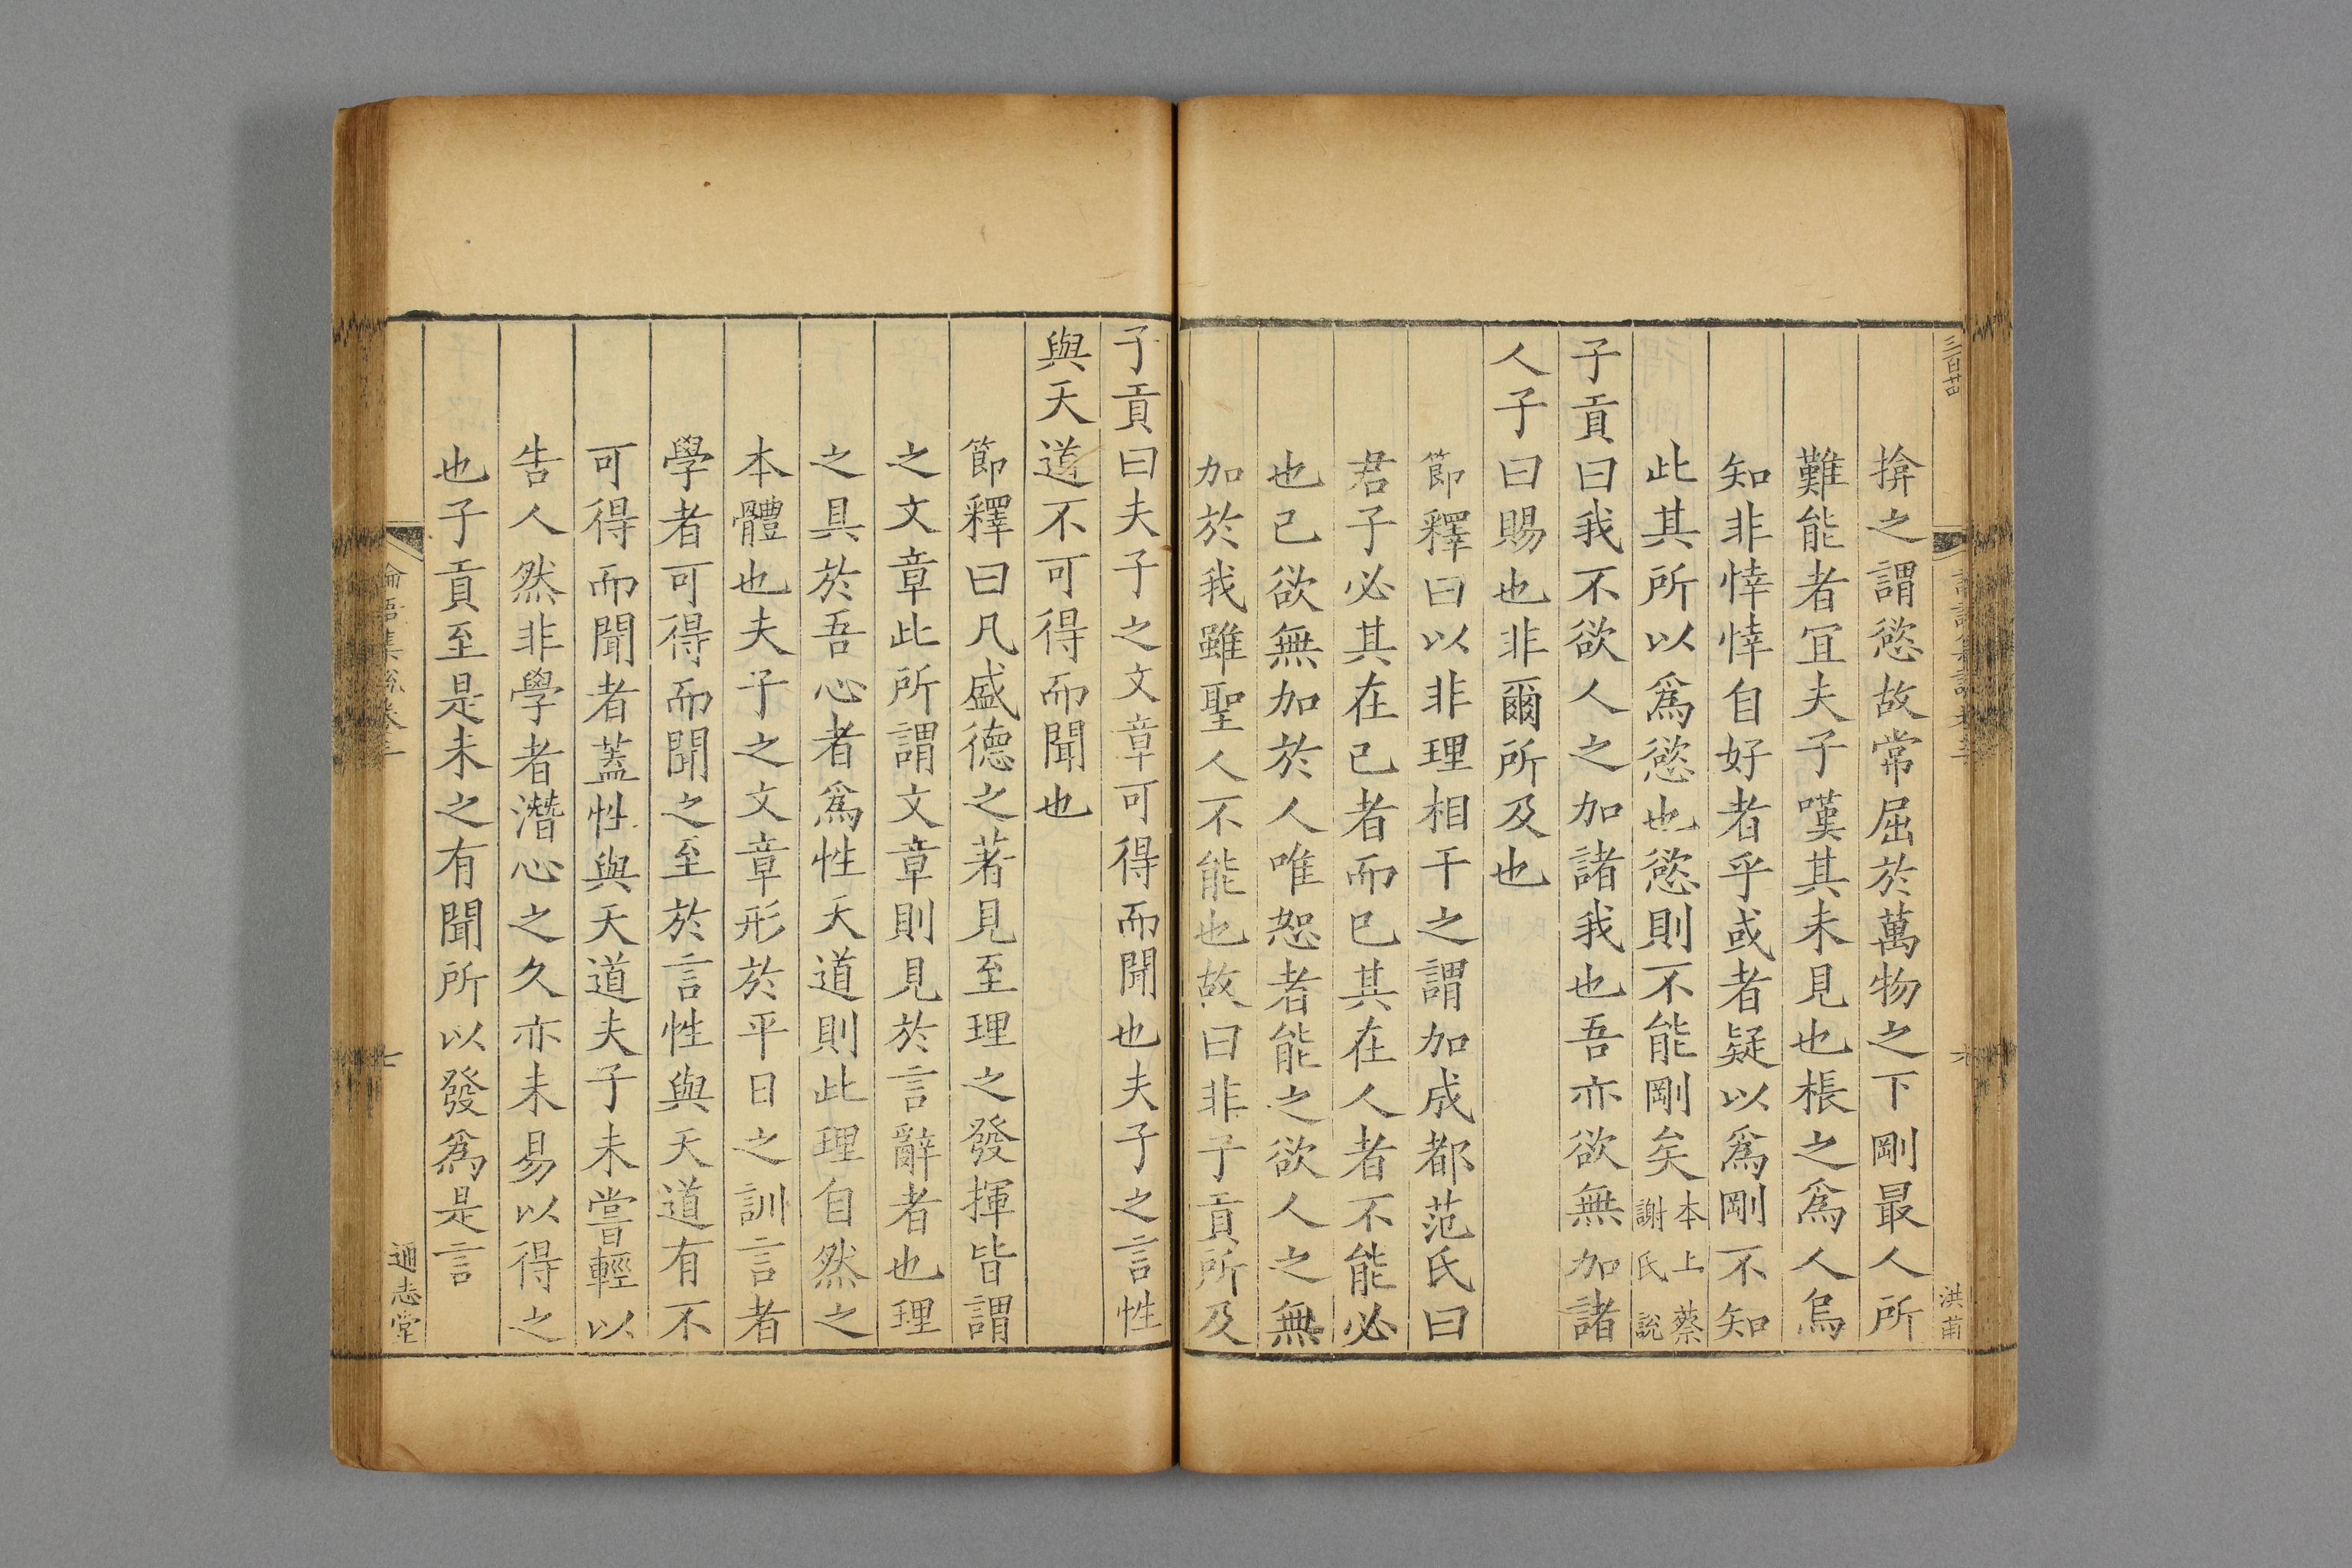 三百廿
洪甫
揜之謂慾故常屈於萬物之下剛最人所
難能者宜夫子嘆其未見也棖之爲人烏
知非悻悻自好者乎或者疑以爲剛不知
此其所以爲慾也慾則不能剛矣本上蔡謝氏說
子貢曰我不欲人之加諸我也吾亦欲無加諸
人子曰賜也非爾所及也
節釋曰以非理相干之謂加成都范氏曰
君子必其在己者而已其在人者不能必
也己欲無加於人唯恕者能之欲人之無
加於我雖聖人不能也故曰非子貢所及
子貢曰夫子之文章可得而聞也夫子之言性
與天道不可得而聞也
節釋曰凡盛德之著見至理之發揮皆謂
之文章此所謂文章則見於言辭者也理
之具於吾心者爲性天道則此理自然之
本體也夫子之文章形於平日之訓言者
學者可得而聞之至於言性與天道有不
可得而聞者蓋性與天道夫子未嘗輕以
告人然非學者潛心之久亦未易以得之
也子貢至是未之有聞所以發爲是言
論語集說卷三
七
通志堂